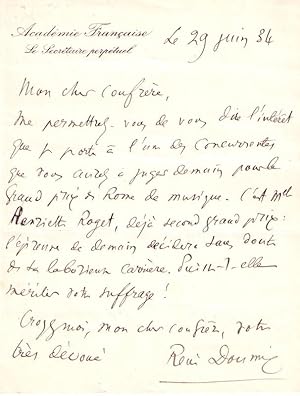 Académie Française
Le Secrétaire perpétuel
Le 29 juin 34
Mon cher confrère,
Me permettrez-vous de vous dire l'intérêt
que je porte à l'une des Concurrentes
que vous aurez à juger demain pour le
Grand prix de Rome de musique. C'est Mlle
Henriette Roget, déjà second grand prix :
l'épreuve de demain décidera sans doute
de sa laborieuse carrière. Puisse-t-elle
mériter votre suffrage !
Croyez moi, mon cher confrère, votre
très dévoué
René Doumic